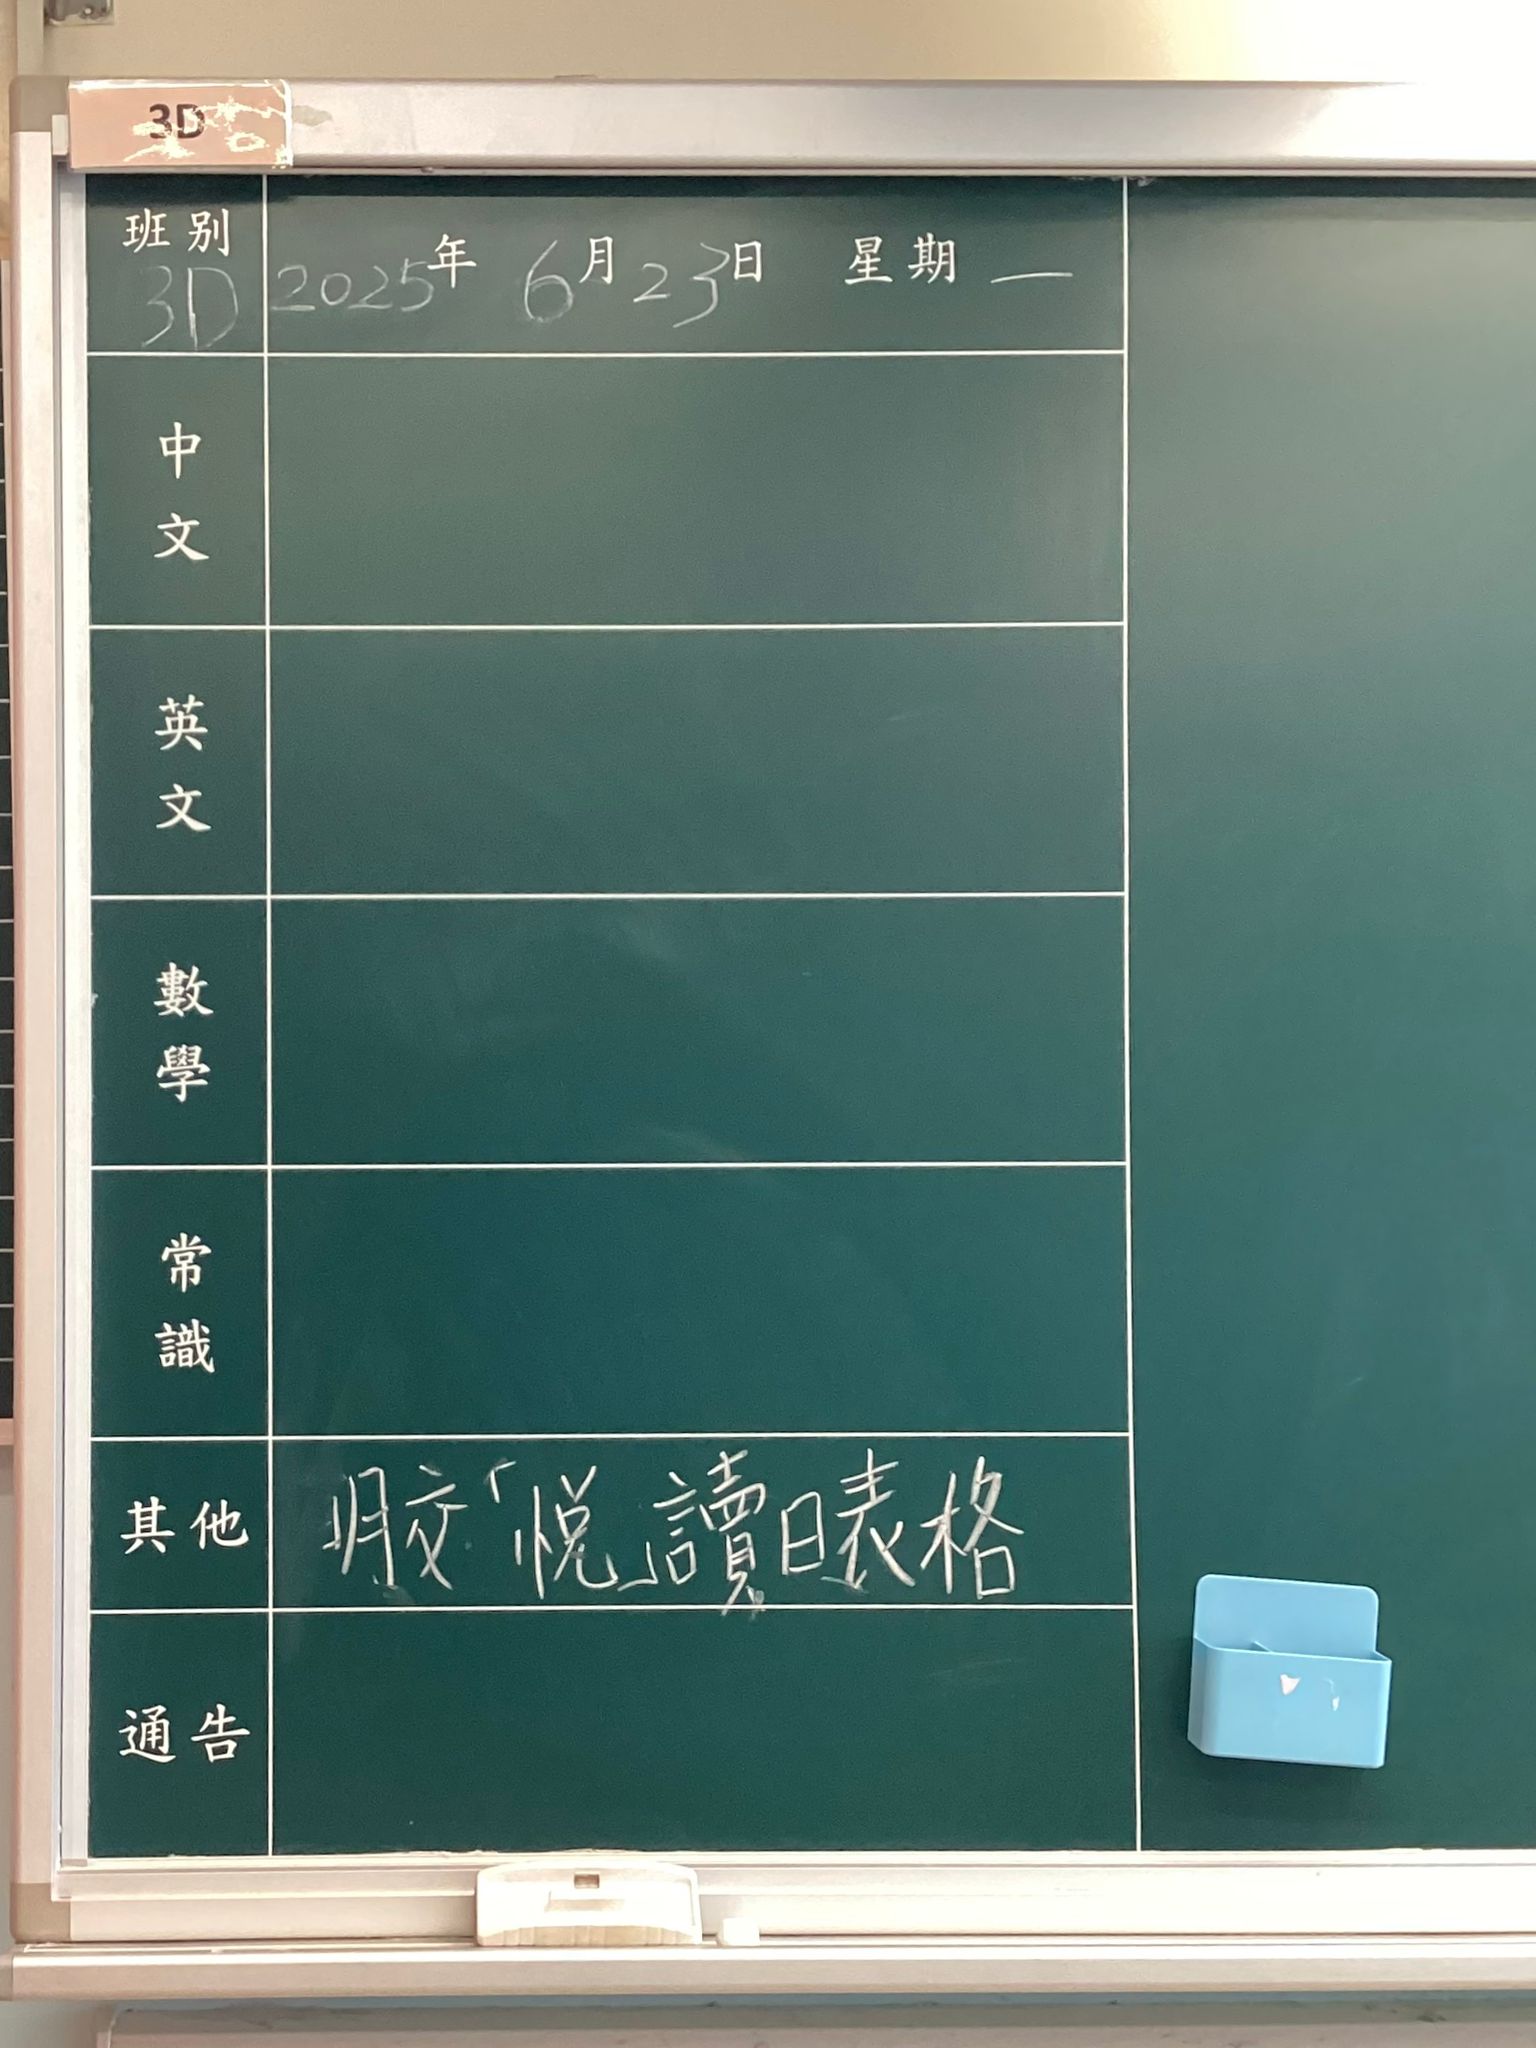 3D
班别 3D 2025年 6月23日 星期一
中文
英文
數學
常識
其他 明交「悦」讀日表格
通告